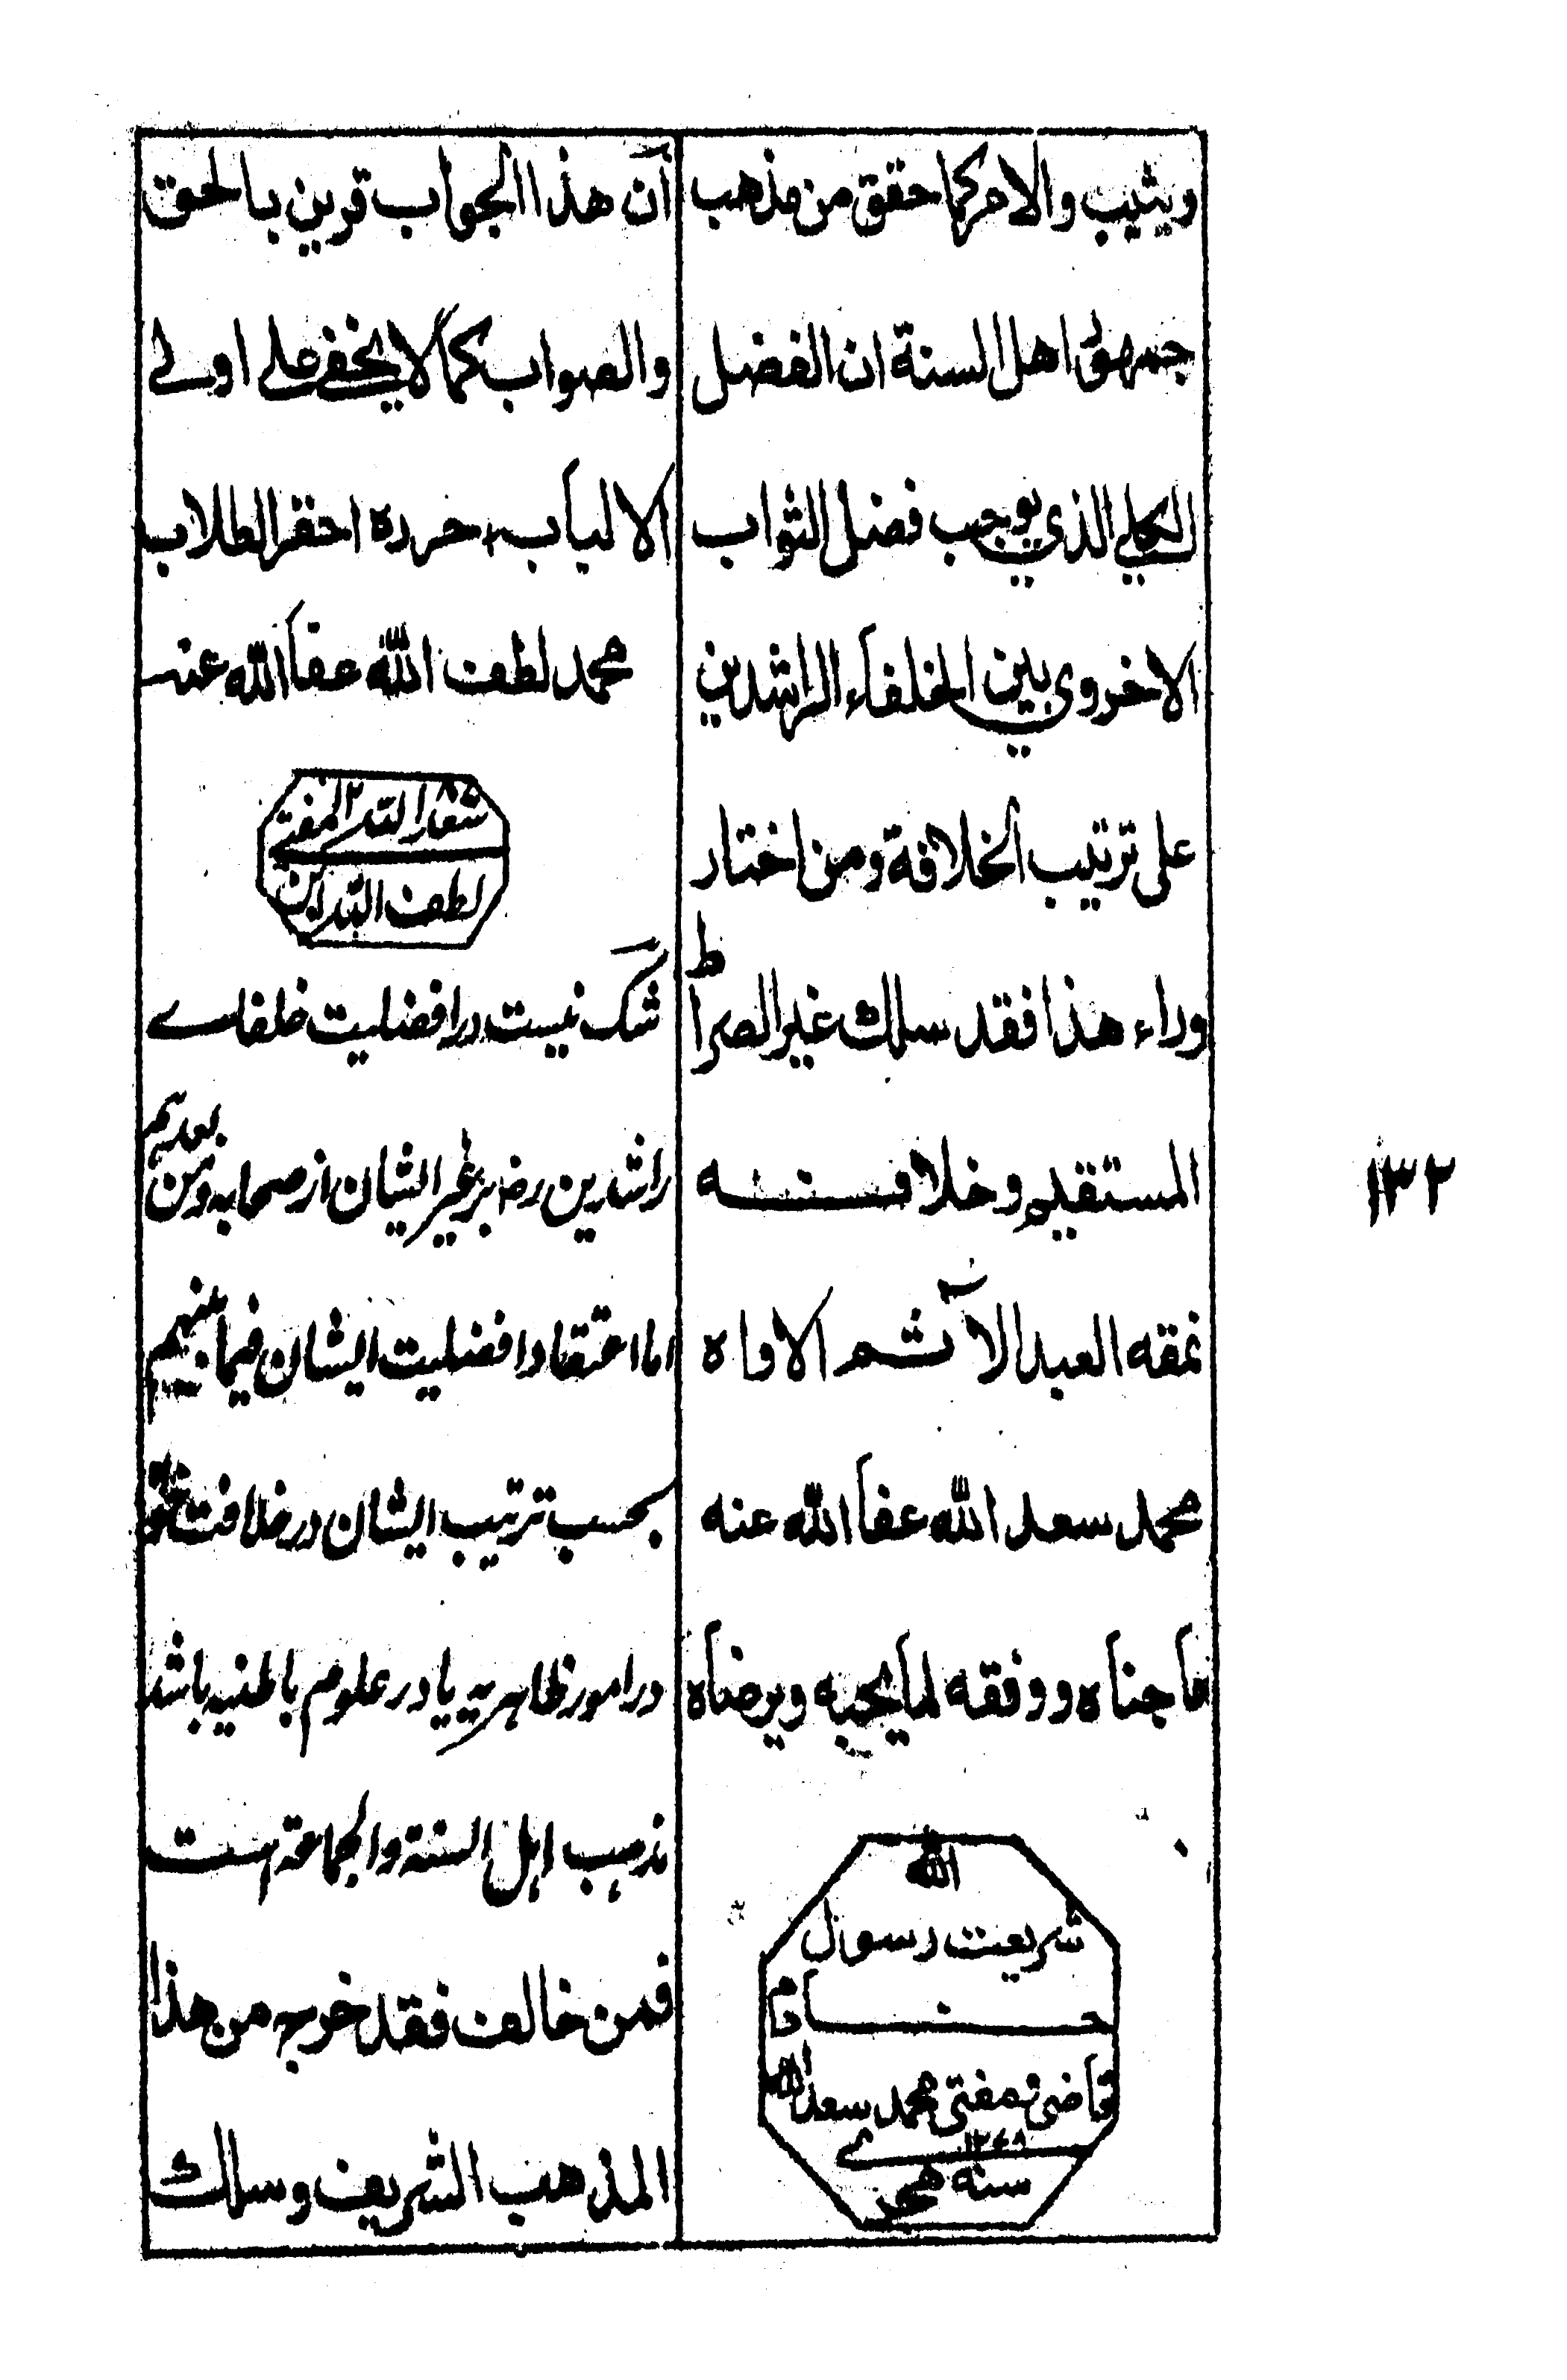 ويثيب والامر كما حقق من مذهب
جمهور اهل السنة ان الفضل
الكلي الذي يوجب فضل الثواب
الاخروي بين الخلفاء الراشدين
على ترتيب الخلافة ومن اختار
وراء هذا فقد سلك غير الصراط
المستقيم وخلافه
نمقه العبد الآثم الاواه
محمد سعد الله عفا الله عنه
ما جناه ووفقه لما يحبه ويرضاه
الله
شريعت رسول
خادم
قاضي و مفتي محمد سعد الله
١٢٤٨
سنه هجري
ان هذا الجواب قرين بالحق
والصواب كما لا يخفى على اولي
الالباب حرره احقر الطلاب
محمد لطف الله عفا الله عنه
المفتي
لطف الله
شک نیست در افضلیت خلفاے
راشدین رض بر غیر ایشان از صحابہ ومن بعدہم
اما اعتقاد افضلیت ایشان فیما بینہم
بحسب ترتیب ایشان در خلافت خواہ
در امور ظاہریہ یا در علوم باطنیہ باشد
مذہب اہل السنۃ والجماعۃ است
فمن خالف فقد خرج من هذا
المذهب الشريف وسلك
١٣٢